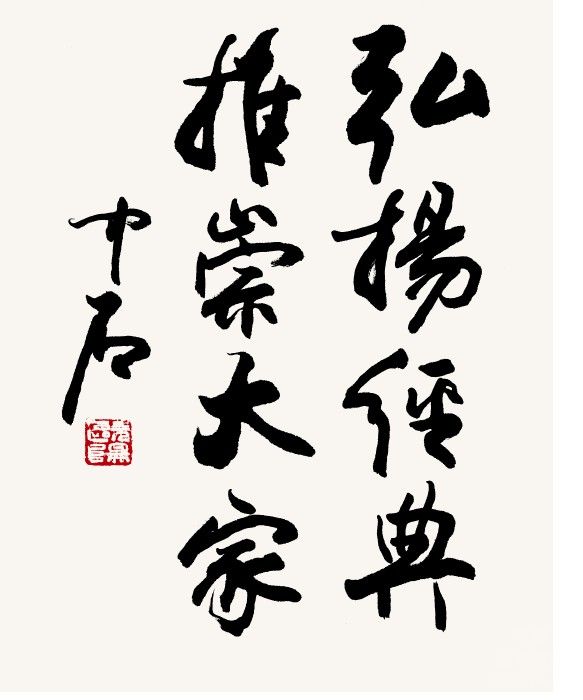 弘揚經典
推崇大家
中石